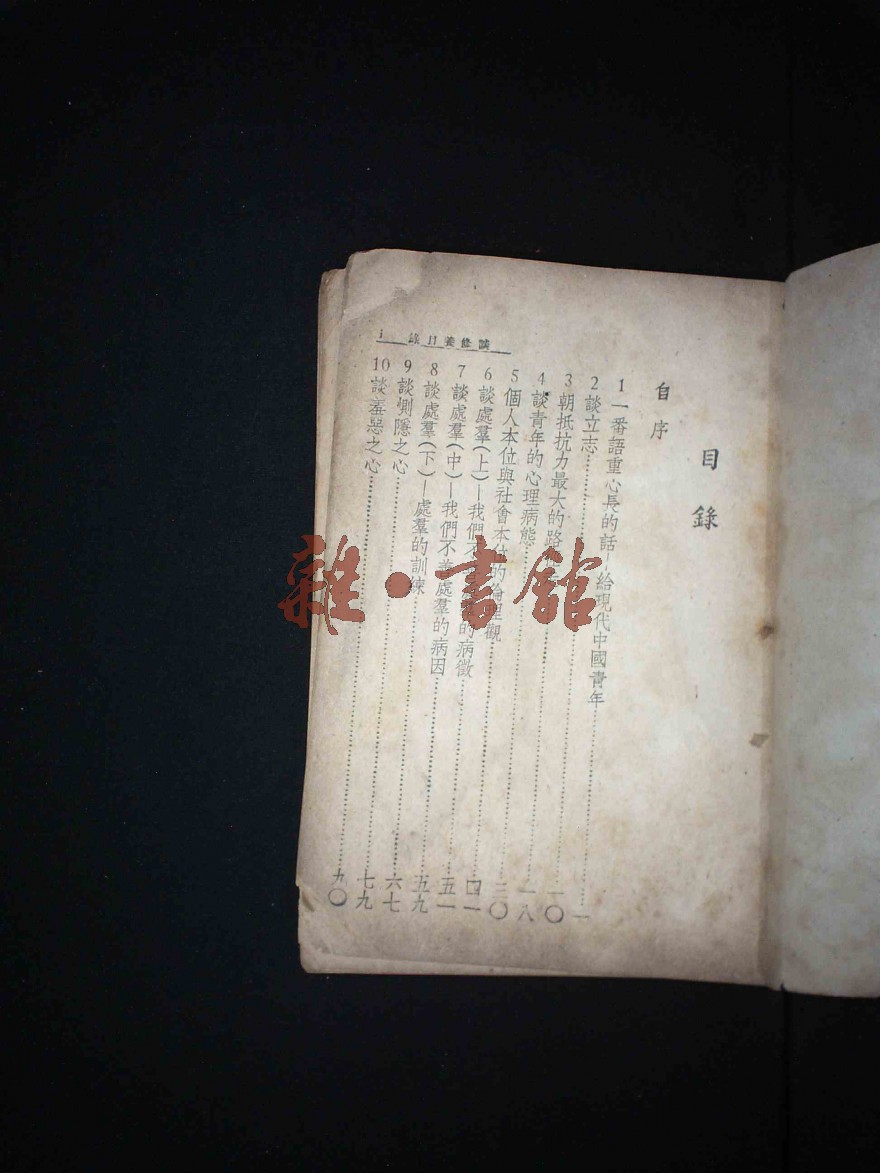 目錄
自序
1 一番語重心長的話—給現代中國青年……一
2 談立志……一〇
3 朝抵抗力最大的路……一八
4 談青年的心理病態……
5 個人本位與社會本位的倫理觀……四一
6 談處羣(上)—我們不的病徵……五一
7 談處羣(中)—我們不善處羣的病因……五九
8 談處羣(下)—處羣的訓練……六七
9 談惻隱之心……七九
10 談羞惡之心……九〇
談修養目錄 i
雜·書館